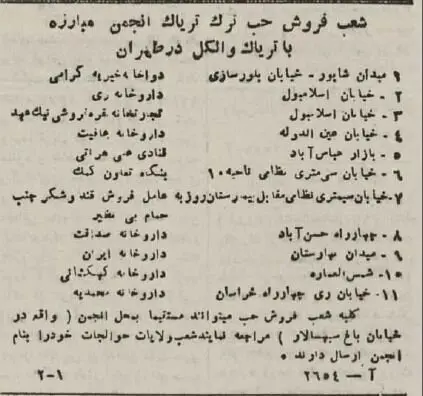 شعب فروش حب ترک تریاک انجمن مبارزه
با تریاک و الکل در طهران
۱ میدان شاپور - خیابان بلورسازی دواخانه خیریه گرامی
۲ - خیابان اسلامبول داروخانه ری
۳ - خیابان اسلامبول تجارتخانه نقره فروشی نیک عهد
۴ - خیابان عین الدوله داروخانه عافیت
۵ - بازار عباس آباد قنادی علی هراتی
۶ - خیابان سی متری نظامی ناحیه ۱۰ بنگاه تعاون کمک
۷- خیابان سیمتری نظامی مقابل بیمارستان روزبه عامل فروش قند و شکر جنب
حمام بی نظیر
۸ - چهارراه حسن آباد داروخانه صداقت
۹ - میدان بهارستان داروخانه ایران
۱۰ - شمس العماره داروخانه کهکشانی
۱۱ - خیابان ری چهارراه خراسان داروخانه محمدیه
کلیه شعب فروش حب میتوانند مستقیما بمحل انجمن ( واقع در
خیابان باغ سپهسالار ) مراجعه نمایند شعب ولایات حوالجات خودرا بنام
انجمن ارسال دارند ۰
آ - ۲۶۵۴ ۲-۱